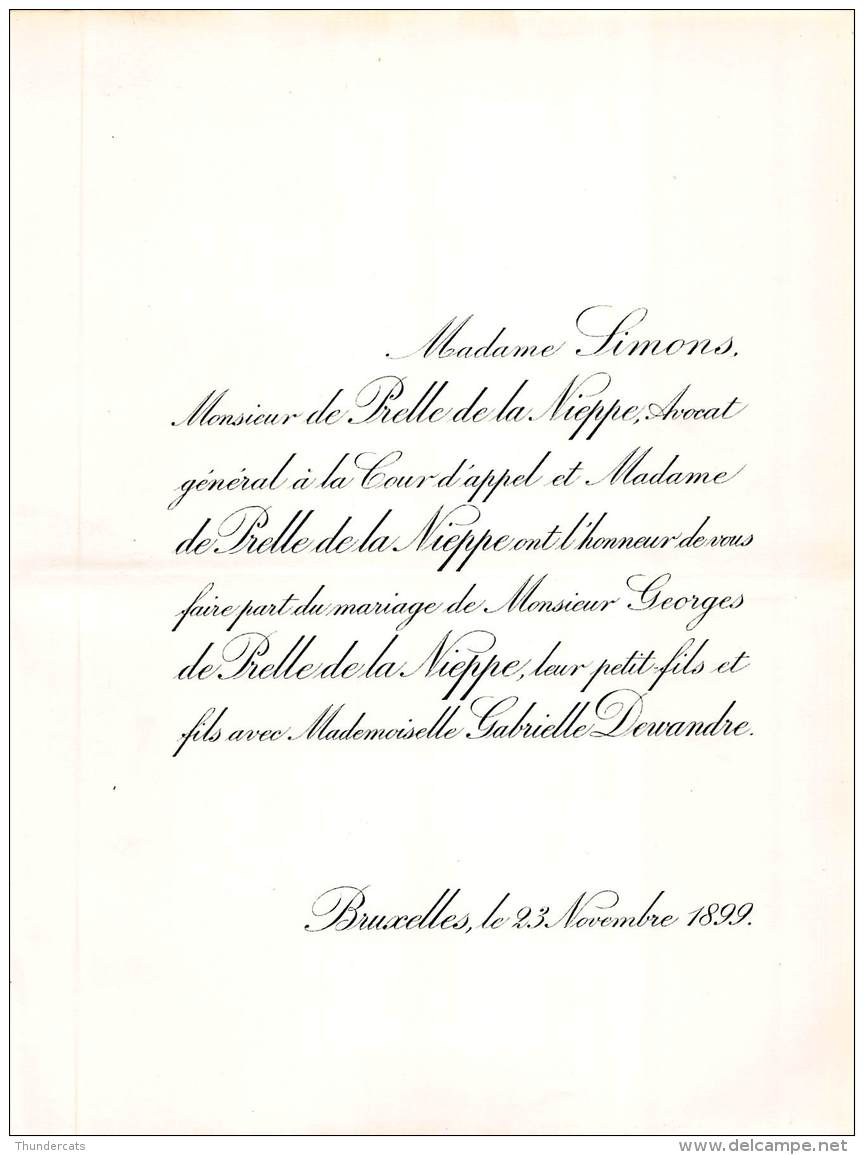 Madame Simons,
Monsieur de Prelle de la Nieppe, Avocat
général à la Cour d'appel et Madame
de Prelle de la Nieppe ont l'honneur de vous
faire part du mariage de Monsieur Georges
de Prelle de la Nieppe, leur petit-fils et
fils avec Mademoiselle Gabrielle Dewandre.
Bruxelles, le 23 Novembre 1899.
Thundercats
www.delcampe.net